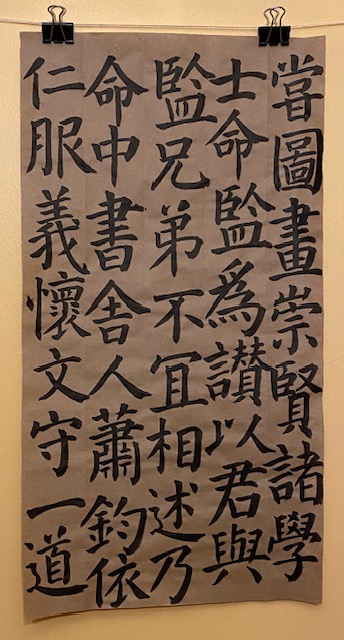 嘗圖畫崇賢諸學
士命監爲讃以君與
監兄弟不冝相述乃
命中書舍人蕭鈞依
仁服義懷文守一道